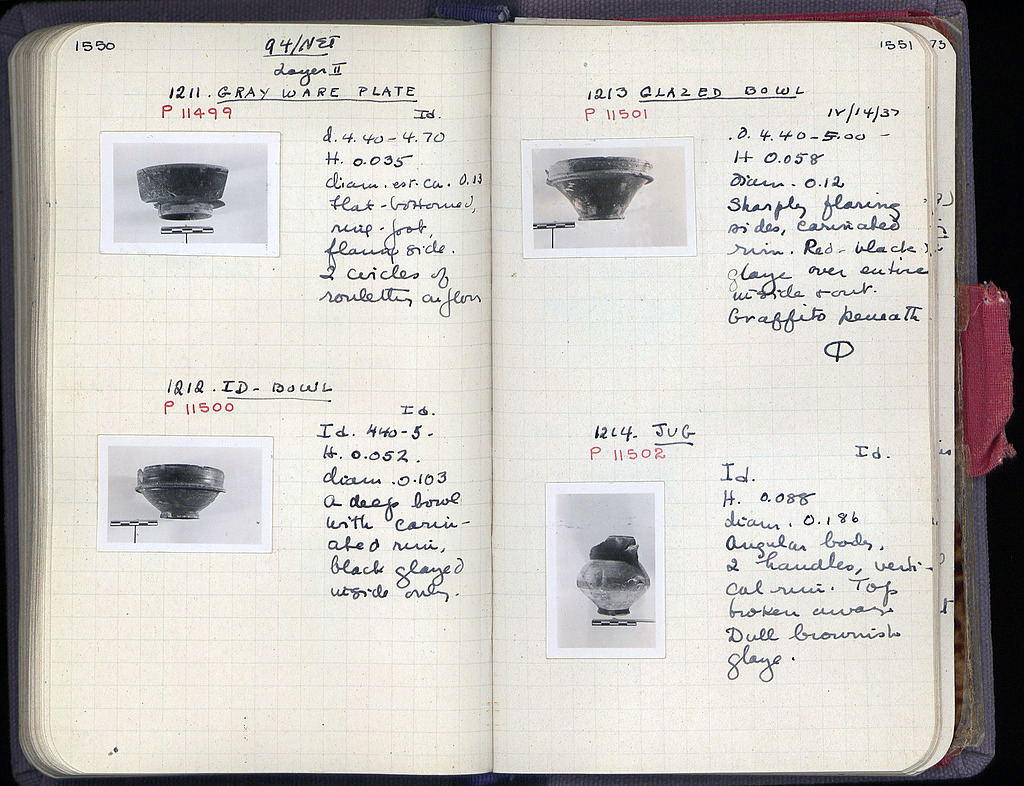 1550
94/ΝΣΤ
Layer II
1211. GRAY WARE PLATE
P 11499
Id.
d. 4.40-4.70
H. 0.035
diam. est. ca. 0.13
flat-bottomed,
ring-foot,
flaring side.
2 circles of
rouletting on floor
1212. ID-BOWL
P 11500
Id.
Id. 440-5-
H. 0.052.
diam. 0.103
A deep bowl
with carin-
ated rim,
black glazed
inside only.
1551
73
1213 GLAZED BOWL
P 11501
IV/14/37
.D. 4.40-5.00 -
H 0.058
Diam. 0.12
Sharply flaring
sides, carinated
rim. Red-black
glaze over entire
inside & out.
Graffito beneath
1214. JUG
P 11502
Id.
Id.
H. 0.088
diam. 0.186
Angular body,
2 handles, verti-
cal rim. Top
broken away
Dull brownish
glaze.